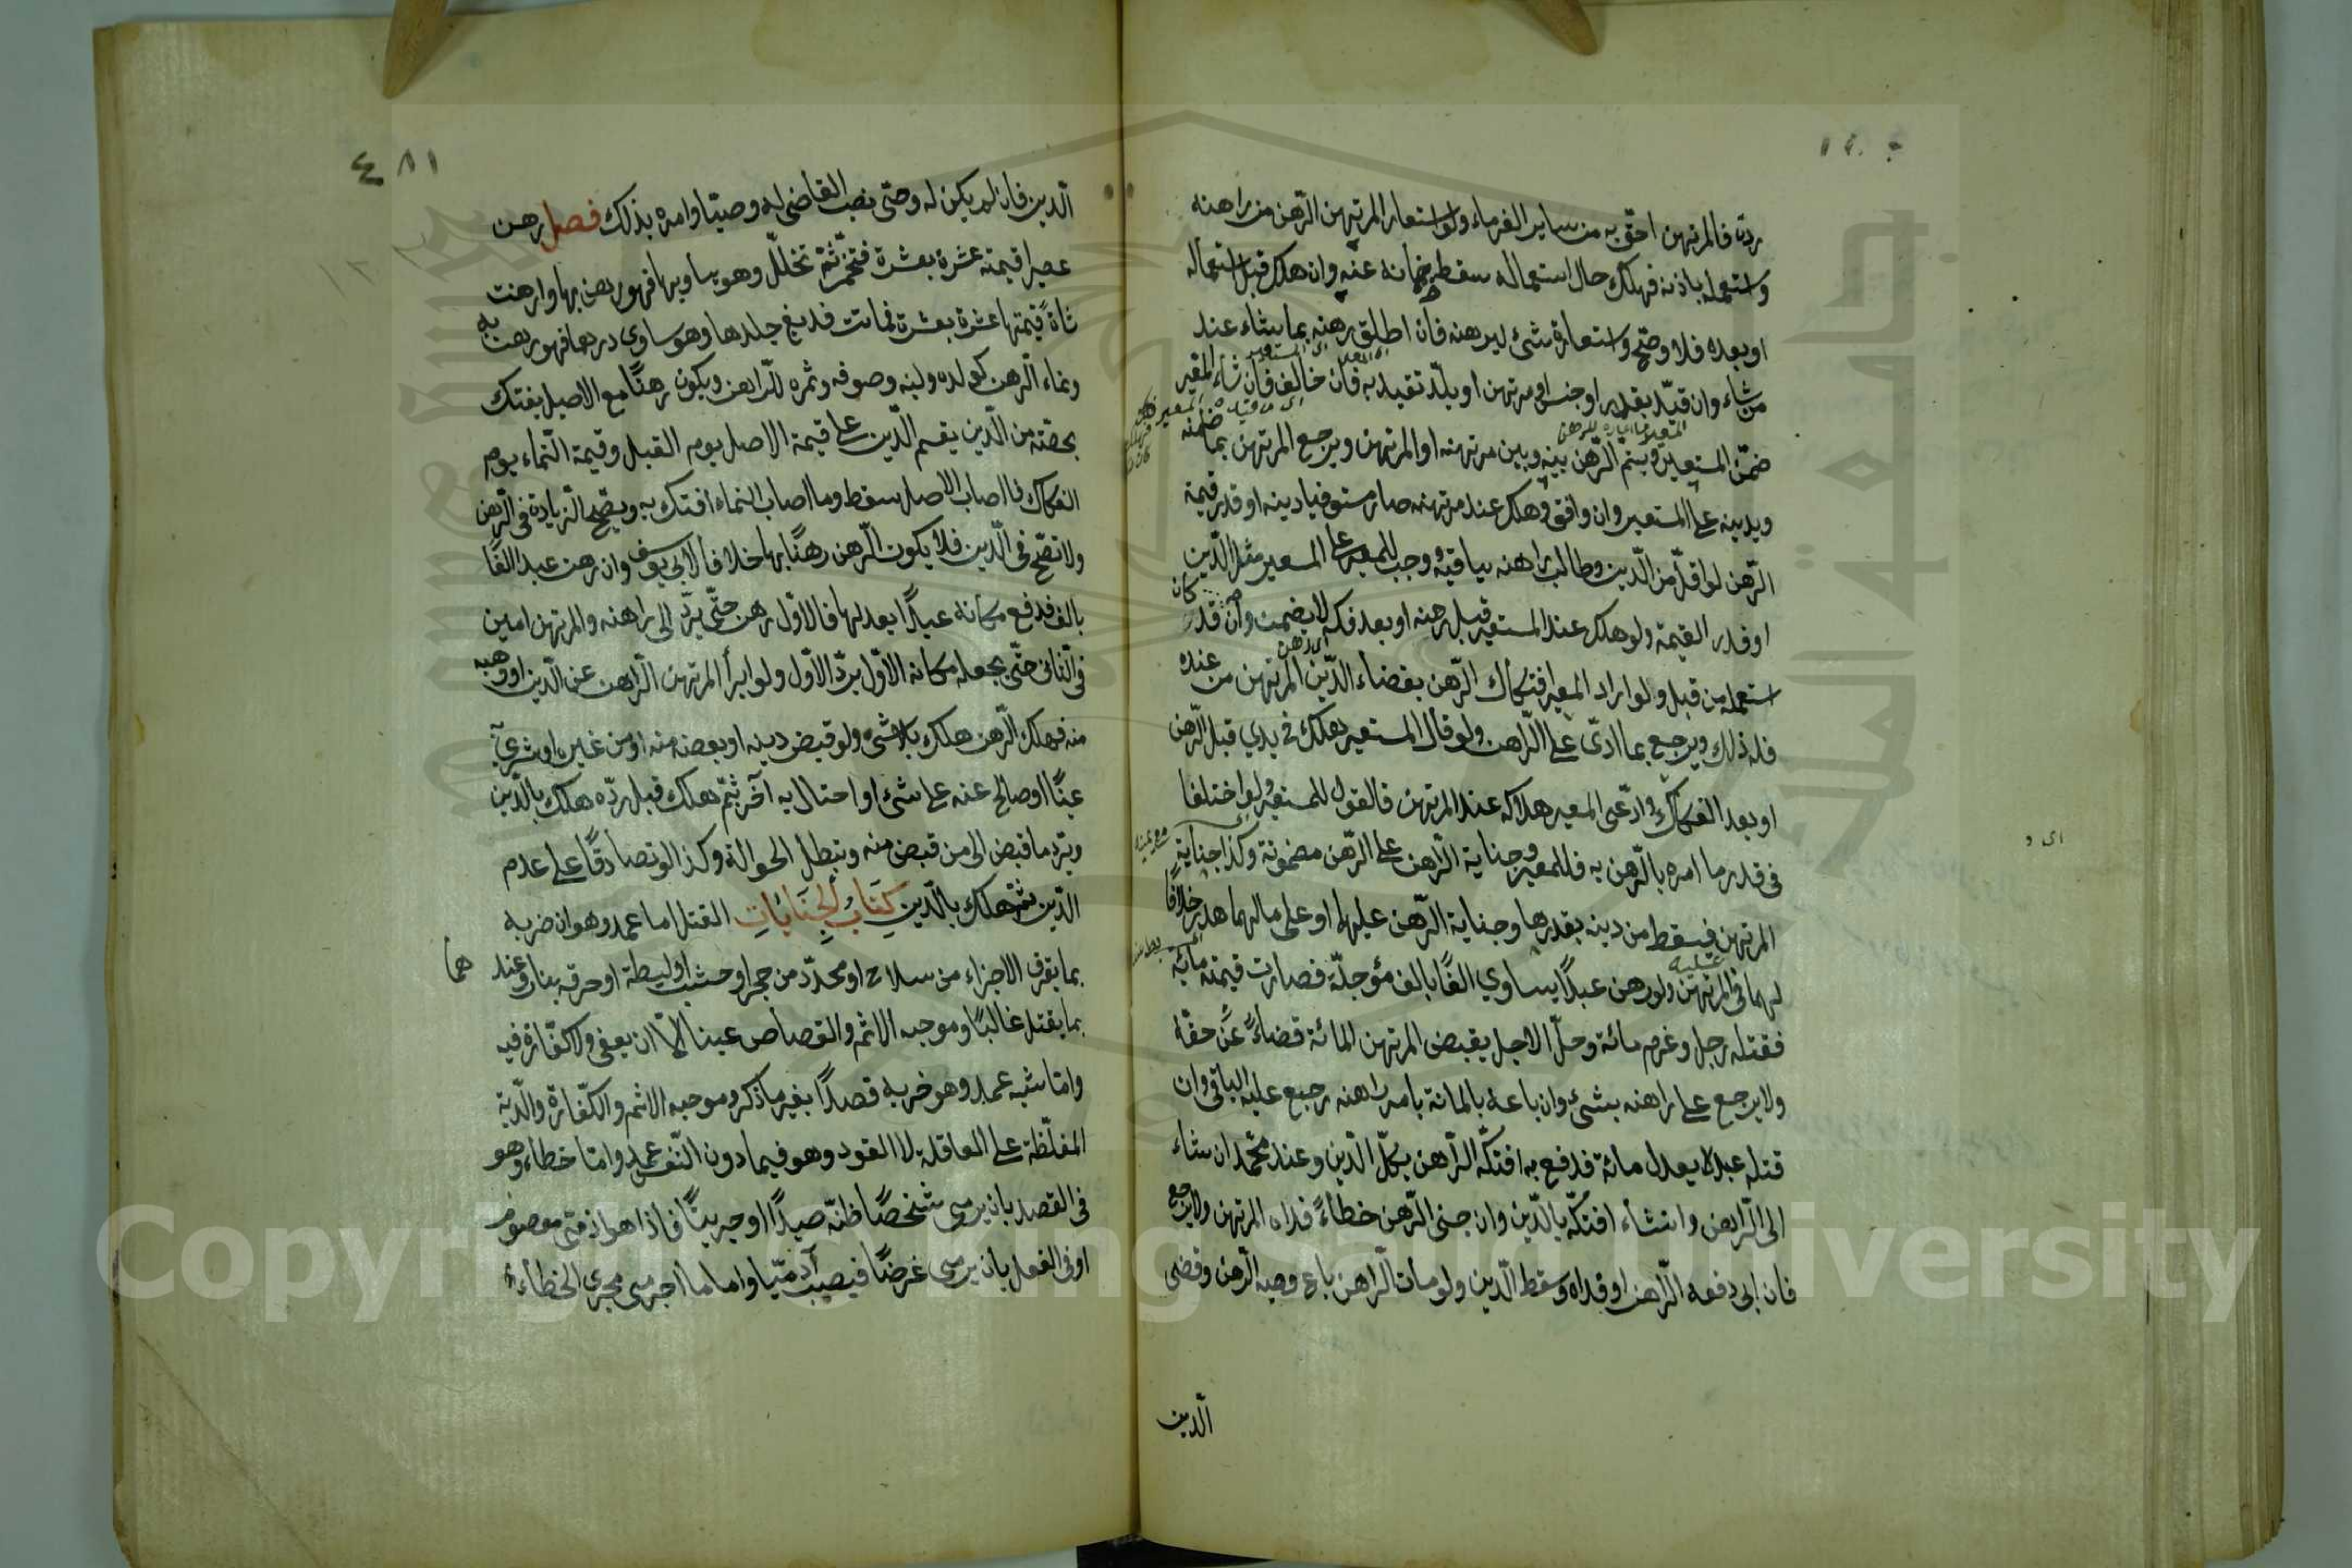 ردّه فالمرتهن احقّ به من ساير الغرماء ولو استعار المرتهن الرّهن من راهنه
واستعمله باذنه فهلك حال استعماله سقط ضمانه عنه وان هلك قبل استعماله
او بعده فلا وصّح استعارة شئ ليرهنه فان اطلق رهنه بما شاء عند
من شاء وان قيّد بقدر او جنس او مرتهن او بلد تقيد به فان خالف فان شاء المعير
ضمّن المستعير ويتم الرّهن بينه وبين مرتهنه او المرتهن ويرجع المرتهن بما ضمنه
وبدينه على المستعير وان وافق وهلك عند مرتهنه صار مستوفيا دينه او قدر قيمة
الرّهن لو اقلّ من الدّين وطالب راهنه بباقيه ووجب للمعير على المستعير مثل الدّين
او قدر القيمة ولو هلك عند المستعير قبل رهنه او بعد فكه لا يضمن وان كان قد
استعمله من قبل ولو اراد المعير افتكاك الرّهن بقضاء الدّين المرتهن من عنده
فله ذلك ويرجع بما ادّى على الرّاهن ولو قال المستعير هلك في يدي قبل الرّهن
او بعد الفكاك وادّعى المعير هلاكه عند المرتهن فالقول للمستعير ولو اختلفا
في قدر ما امره بالرّهن به فللمعير وجناية الرّاهن على الرّهن مضمونة وكذا جناية
المرتهن فيسقط من دينه بقدرها وجناية الرّهن عليهما او على مالهما هدر خلافًا
لهما في المرتهن ولو رهن عبدًا يساوي الفًا بالف مؤجلة فصارت قيمته مائة
فقتله رجل وغرم مائة وحلّ الاجل يقبض المرتهن المائة قضاءً عن حقّه
ولا يرجع على راهنه بشئ وان باعه بالمائة بامر راهنه رجع عليه الباقي وان
قتله عبد لا يعدل مائة فدفع به افتكّه الرّاهن بكلّ الدّين وعند محمّد ان شاء
الى الرّاهن وانشاء افتكّه بالدّين وان جنى الرّهن خطاءً فداه المرتهن ولا يرجع
فان ابى دفعه الرّاهن او فداه وسقط الدّين ولو مات الرّاهن باع وصيه الرّهن وقضى
الدين
٤٨١
الدّين فان لم يكن له وصّى نصب القاضى له وصيّا وامره بذلك فصل رهن
عصيرا قيمته عشرة بعشرة فتخمّر ثمّ تخلّل وهو يساويها فهو رهن بها وان رهنت
شاةً قيمتها عشرة بعشرة فماتت فدبغ جلدها وهو يساوي درهما فهو رهن به
ونماء الرّهن كولده ولبنه وصوفه وثمره للرّاهن ويكون رهنًا مع الاصل يفتك
بحصّته من الدّين يقسم الدّين على قيمة الاصل يوم القبض وقيمة النّماء يوم
الفكاك فما اصاب الاصل سقط وما اصاب النماء افتك به ويصّح الزيادة في الرّهن
ولا تصّح في الدّين فلا يكون الرّهن رهنًا بها خلافا لابى يوسف وان رهن عبدا الفًا
بالف فدفع مكانه عبدًا يعدلها فالاوّل رهن حتّى يردّ الى راهنه والمرتهن امين
في الثّاني حتّى يجعله مكان الاوّل بردّ الاوّل ولو ابرأ المرتهن الرّاهن عن الدّين او وهبه
منه فهلك الرّهن هلك بلا شئ ولو قبض دينه او بعضه منه او من غيره او شرى به
عينًا او صالح عنه على شئ او احتال به آخر ثمّ هلك قبل ردّه هلك بالدّين
ويردّ ما قبض الى من قبض منه وتبطل الحوالة وكذا لو تصادقا على عدم
الدّين ثمّ هلك بالدّين كتاب الجنايات القتل اما عمد وهو ان ضربه
بما يفرق الاجزاء من سلاح او محدّد من حجر او خشب او ليطة او حرقه بنار وعند هما
بما يقتل غالبًا وموجبه الاثم والقصاص عينا الّا ان يعفى ولا كفّارة فيه
وامّا شبه عمد وهو ضربه قصدًا بغير ما ذكر وموجبه الاثم والكفّارة والدّية
المغلّظة على العاقلة لا القود وهو فيما دون النّفس عمد وامّا خطاء وهو
في القصد بان يرمى شخصًا ظنّه صيدًا او حربيًّا فاذا هو آدمّى معصوم
او في الفعل بان يرمى غرضًا فيصيب آدميّا واما ما اجرى مجرى الخطاء